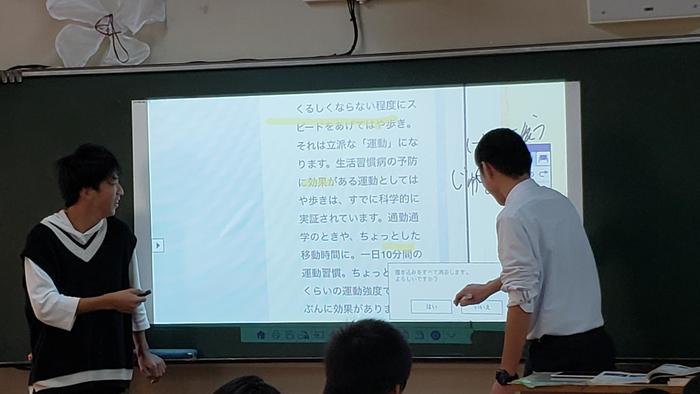 くるしくならない程度にス
ピードをあげてはや歩き。
それは立派な「運動」にな
ります。生活習慣病の予防
に効果がある運動としては
や歩きは、すでに科学的に
実証されています。通勤通
学のときや、ちょっとした
移動時間に。一日10分間の
運動習慣。ちょっと
くらいの運動強度で
ぶんに効果がありま
書き込みをすべて消去します。
よろしいですか?
はい
いいえ